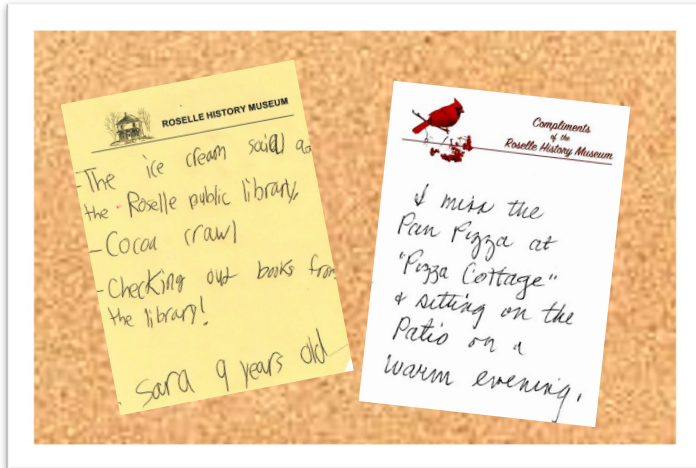 ROSELLE HISTORY MUSEUM
-The ice cream soical ao
the Roselle public library,
-Cocoa crawl
-Checking out books from
the library!
Sara 9 years old
Compliments
of the
Roselle History Museum
I miss the
Pan Pizza at
"Pizza Cottage"
& sitting on the
Patio on a
warm evening.